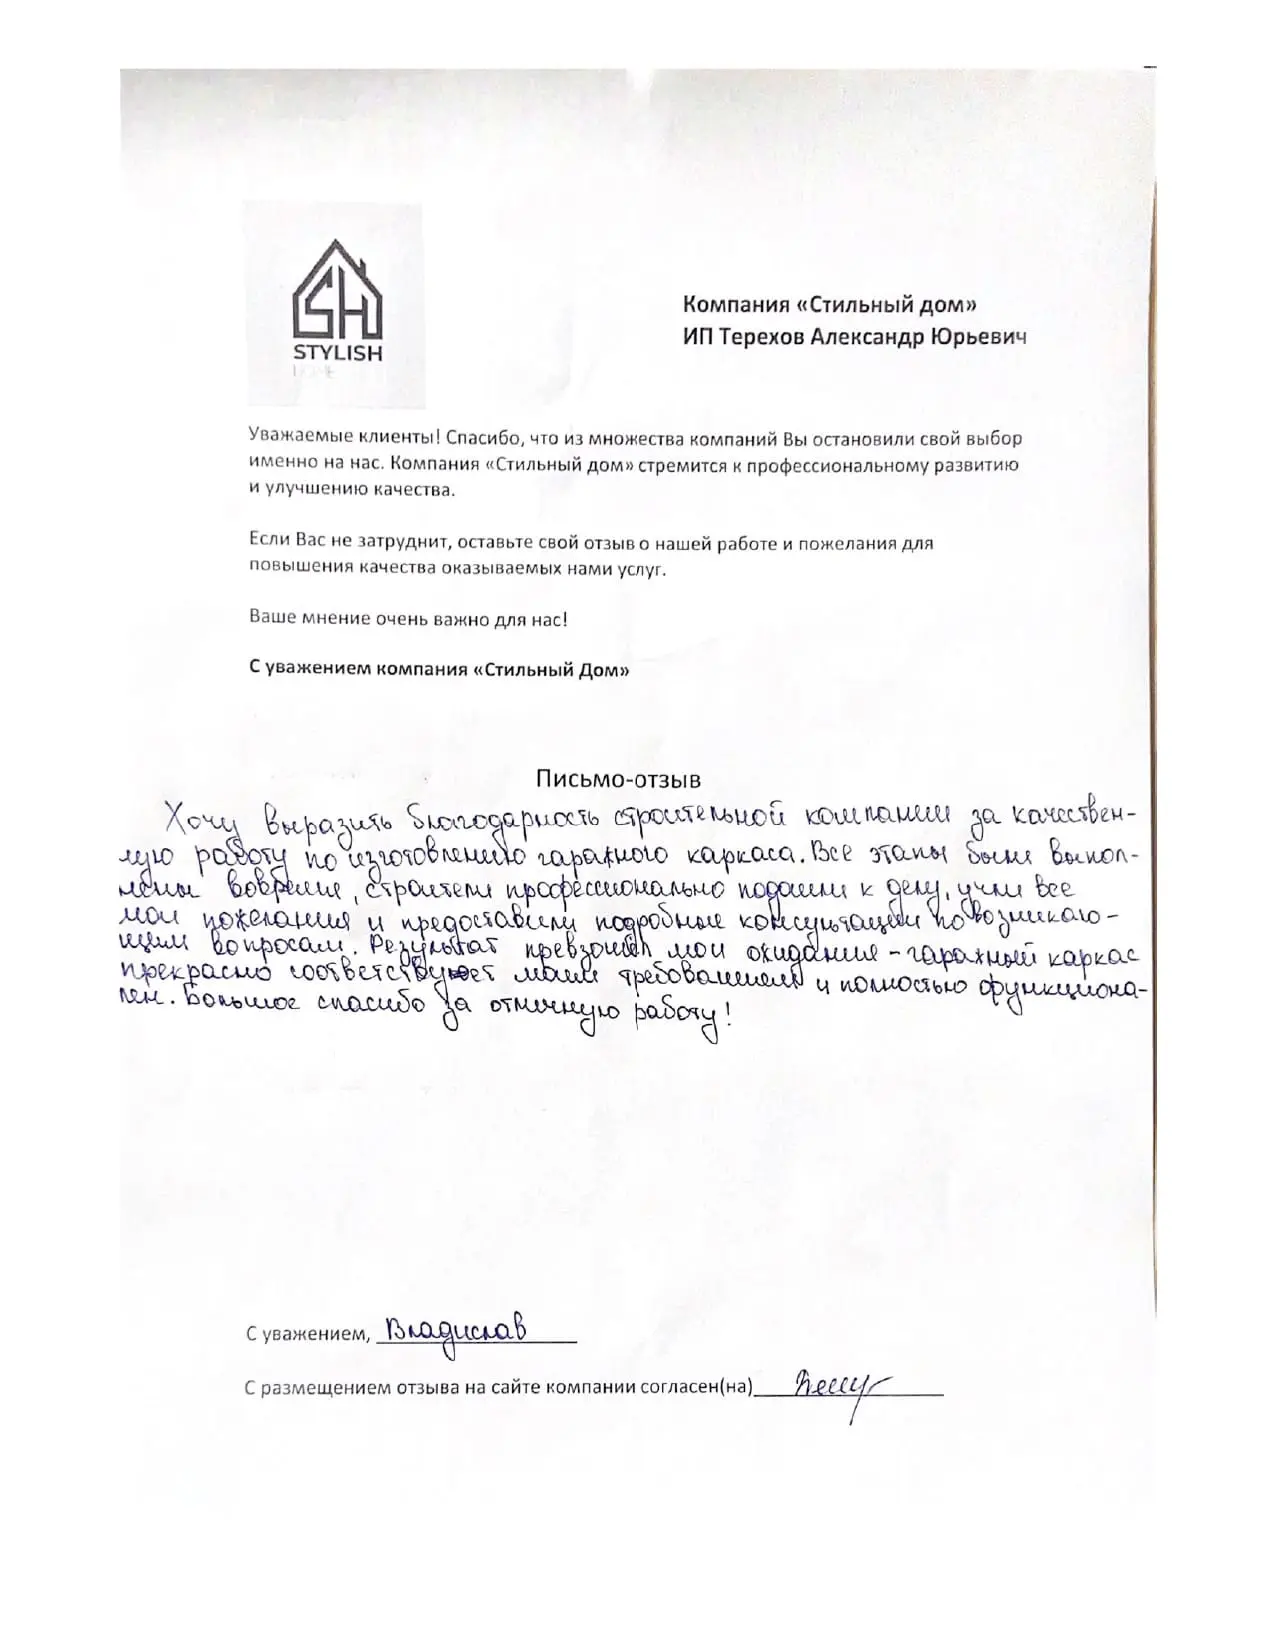 SH
STYLISH
HOME
Компания «Стильный дом»
ИП Терехов Александр Юрьевич
Уважаемые клиенты! Спасибо, что из множества компаний Вы остановили свой выбор
именно на нас. Компания «Стильный дом» стремится к профессиональному развитию
и улучшению качества.
Если Вас не затруднит, оставьте свой отзыв о нашей работе и пожелания для
повышения качества оказываемых нами услуг.
Ваше мнение очень важно для нас!
С уважением компания «Стильный Дом»
Письмо-отзыв
Хочу выразить благодарность строительной компании за качествен-
ную работу по изготовлению гаражного каркаса. Все этапы были выпол-
нены вовремя, строители профессионально подошли к делу, учли все
мои пожелания и предоставили подробные консультации по возникаю-
щим вопросам. Результат превзошёл мои ожидания - гаражный каркас
прекрасно соответствует моим требованиям и полностью функциона-
лен. Большое спасибо за отличную работу!
С уважением, Владислав
С размещением отзыва на сайте компании согласен(на)